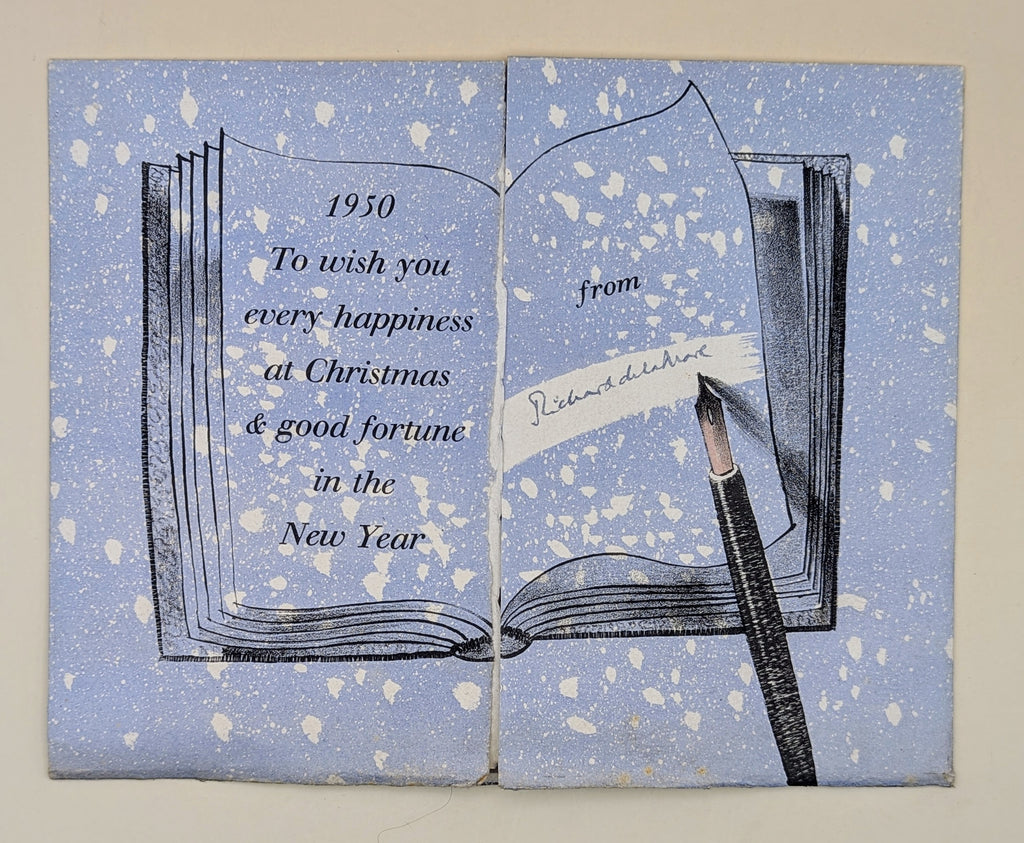 1950
To wish you
every happiness
at Christmas
& good fortune
in the
New Year
from
Richard de la Mare